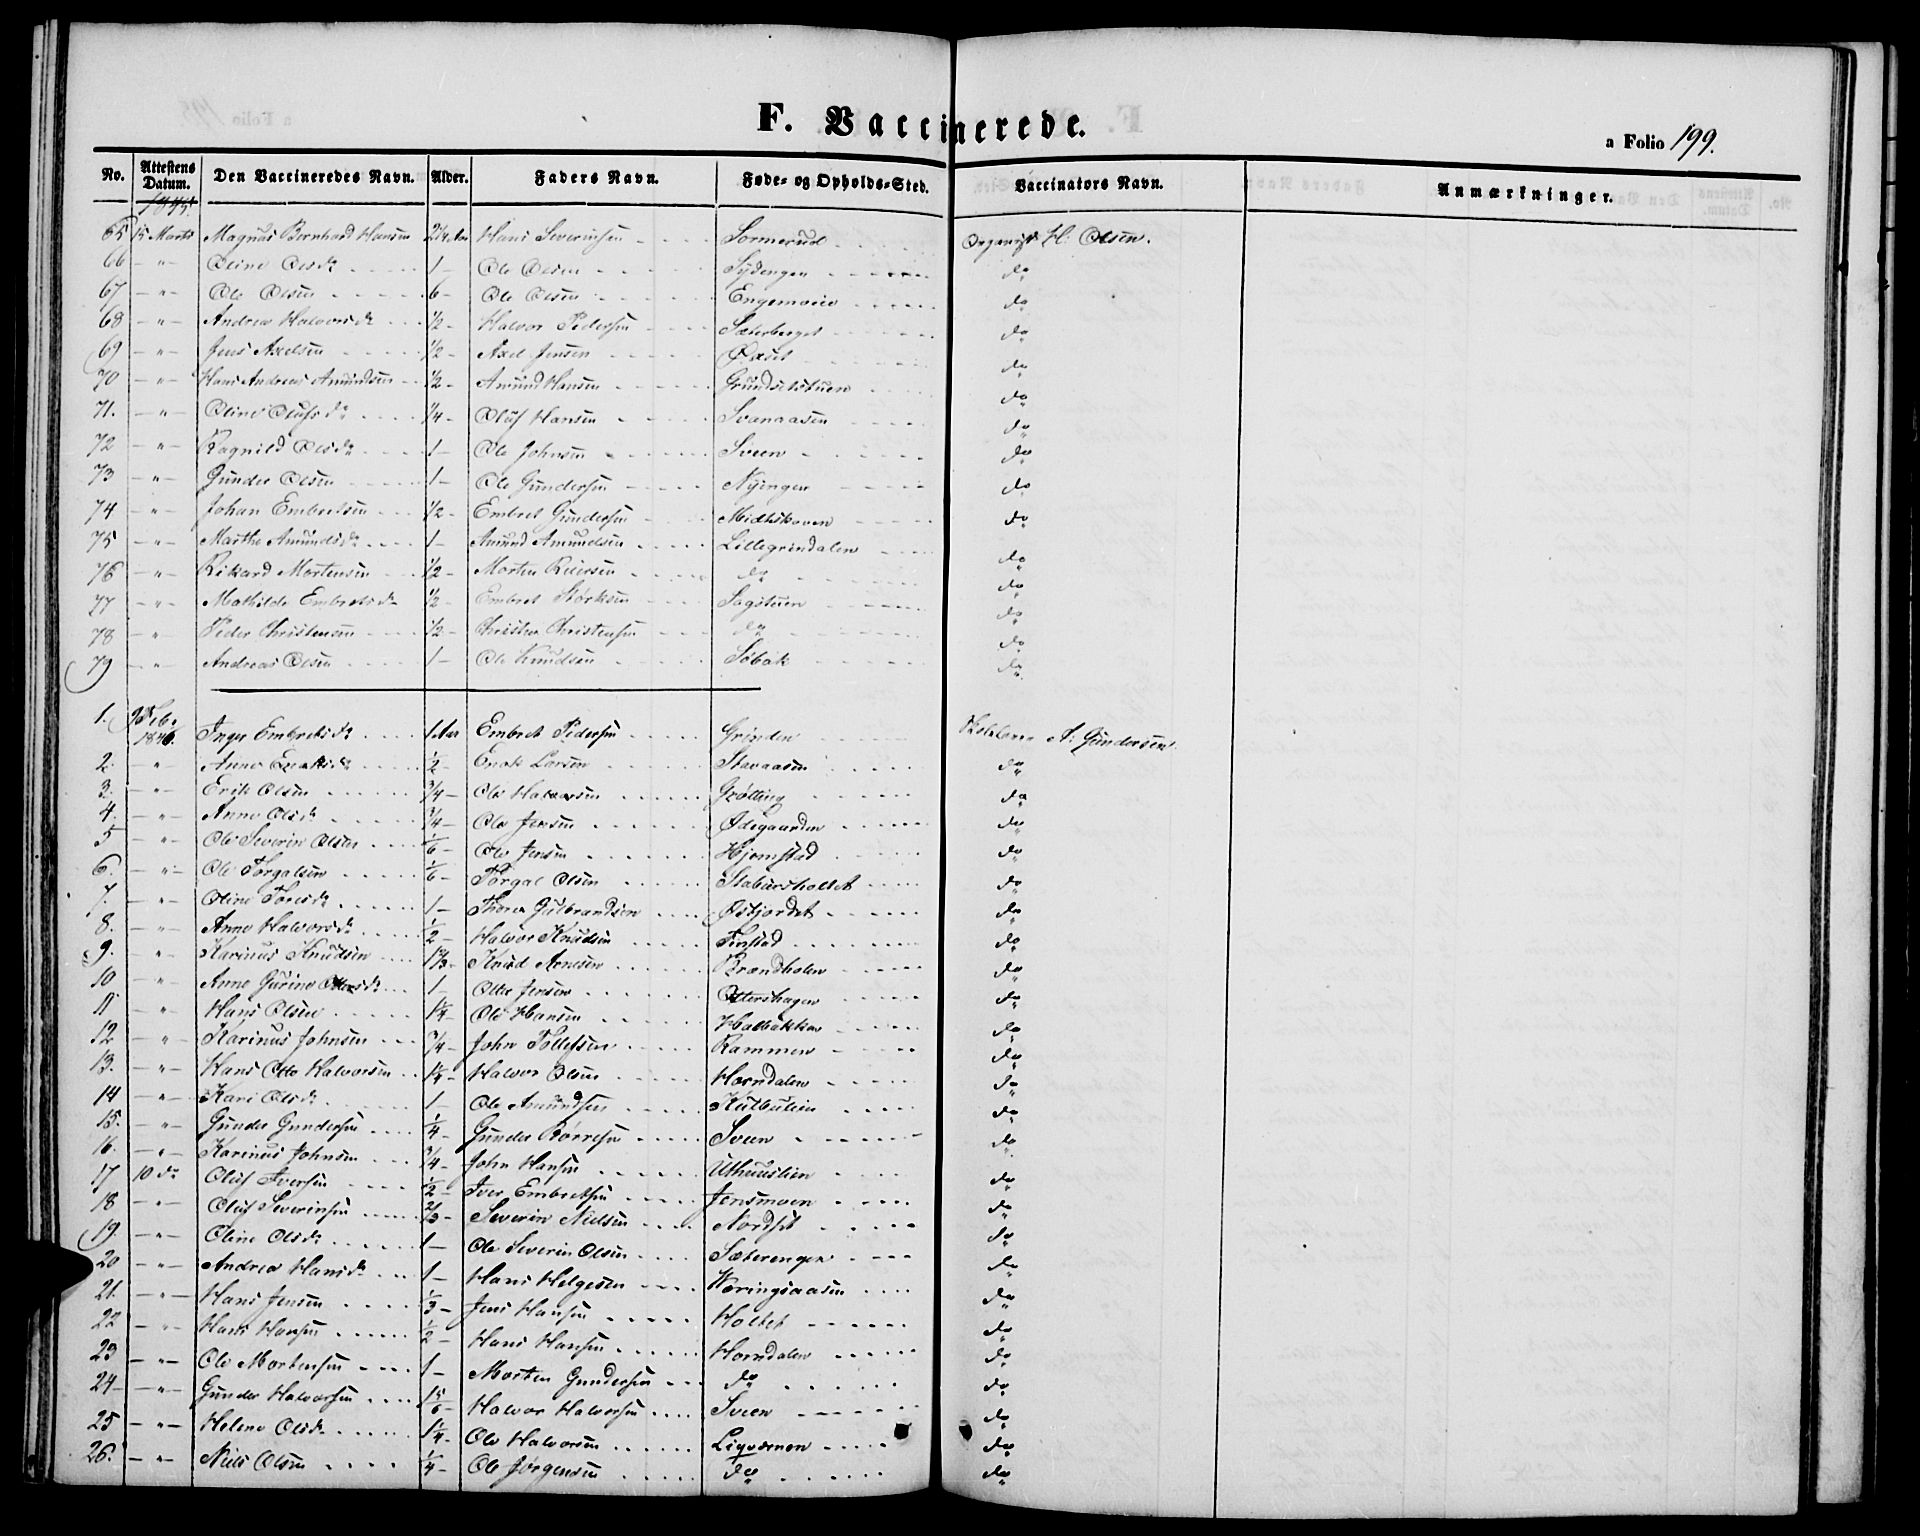 F. Vaccinerede.
a Folio 199.
No. Attestens Datum. Den Vaccineredes Navn. Alder. Faders Navn. Føde- og Opholds-Sted. Vaccinators Navn. Anmærkninger.
1845
65 15 Marts Magnus Bernhard Hansen 2 1/4 Aar Hans Severinsen Sormerud Organist H: Olsen.
66 — " — Oline Olsdr 1 — Ole Olsen Sydengen do
67 — " — Ole Olsen 6 — Ole Olsen Engemoen do
68 — " — Andrea Halvorsdr 1/2 — Halvor Pedersen Sæterberget do
69 — " — Jens Axelsen 1/2 — Axel Jensen Øxset do
70 — " — Hans Andreas Amundsen 1/2 — Amund Hansen Grundsetstuen do
71. — " — Oline Olufsdr 1/4 — Oluf Hansen Svanaasen do
72 — " — Ragnild Olsdr 1 — Ole Johnsen Sveen do
73 — " — Gunder Olsen 1 — Ole Gundersen Nyingen do
74 — " — Johan Embretsen 1/2 — Embret Gundersen Midtskoven do
75 — " — Marthe Amundsdr 1 — Amund Amundsen Lillegrindalen do
76 — " — Rikard Mortensen 1/2 — Morten do do
77 — " — Mathilde Embretsdr 1/2 — Embret Størksen Sagstuen do
78 — " — Peder Christensen 1/2 — Christen Christensen do do
79 — " — Andreas Olsen 1 — Ole Knudsen Søbak do
1. 9 Feb. 1846. Inger Embretsdr 1 Aar Embret Pedersen Grinden A: Gundersen.
2. — " — Anne Enoksdr 1/2 — Enok Larsen Stavaasen do
3. — " — Erik Olsen 3/4 — Ole Halvorsen Grøtting do
4. — " — Anne Olsdr 3/4 — Ole Jensen Ødegaarden do
5 — " — Ole Severin Olsen 1/6 — Ole Jensen Hjemstad do
6. — " — Ole Torgalsen 1/6 — Torgal Olsen Stabursholdet do
7. — " — Oline Toresdr 1 — Thore Gulbrandsen Østjordet do
8. — " — Anne Halvorsdr 1/2 — Halvor Knudsen Finstad do
9. — " — Karinus Knudsen 1 2/3 — Knud Arnesen Brændholen do
10 — " — Anne Gurine Ottersdr 1 — Otter Jensen Ottershagen do
11 — " — Hans Olsen 1 1/4 — Ole Hansen Halbakken do
12 — " — Karinus Johnsen 3/4 — John Tollefsen Rammen do
13. — " — Hans Otto Halvorsen 1 1/4 — Halvor Olsen Horndalen do
14 — " — Kari Olsdr 1 — Ole Amundsen Kulbulien do
15. — " — Gunder Gundersen 1/4 — Gunder Børresen Sveen do
16. — " — Karinus Johnsen 3/4 — John Hansen Uthuuslien do
17 10 do Oluf Iversen 1/2 — Iver Embretsen Jensmoen do
18 — " — Oluf Severinsen 2/3 — Severin Nielsen Nordset do
19. — " — Oline Olsdr 1 — Ole Severin Olsen Sæterengen do
20 — " — Andrea Hansdr 1 — Hans Helgesen Væringsaasen do
21. — " — Hans Jensen 1/3 — Jens Hansen Holtet do
22 — " — Hans Hansen 1/2 — Hans Hansen Horndalen do
23 — " — Ole Mortensen 1 — Morten Gundersen do do
24 — " — Gunder Halvorsen 1 5/6 — Halvor Halvorsen Sveen do
25 — " — Helene Olsdr 1 1/4 — Ole Halvorsen Ligværnen do
26. — " — Niels Olsen 1/4 — Ole Jørgensen do do